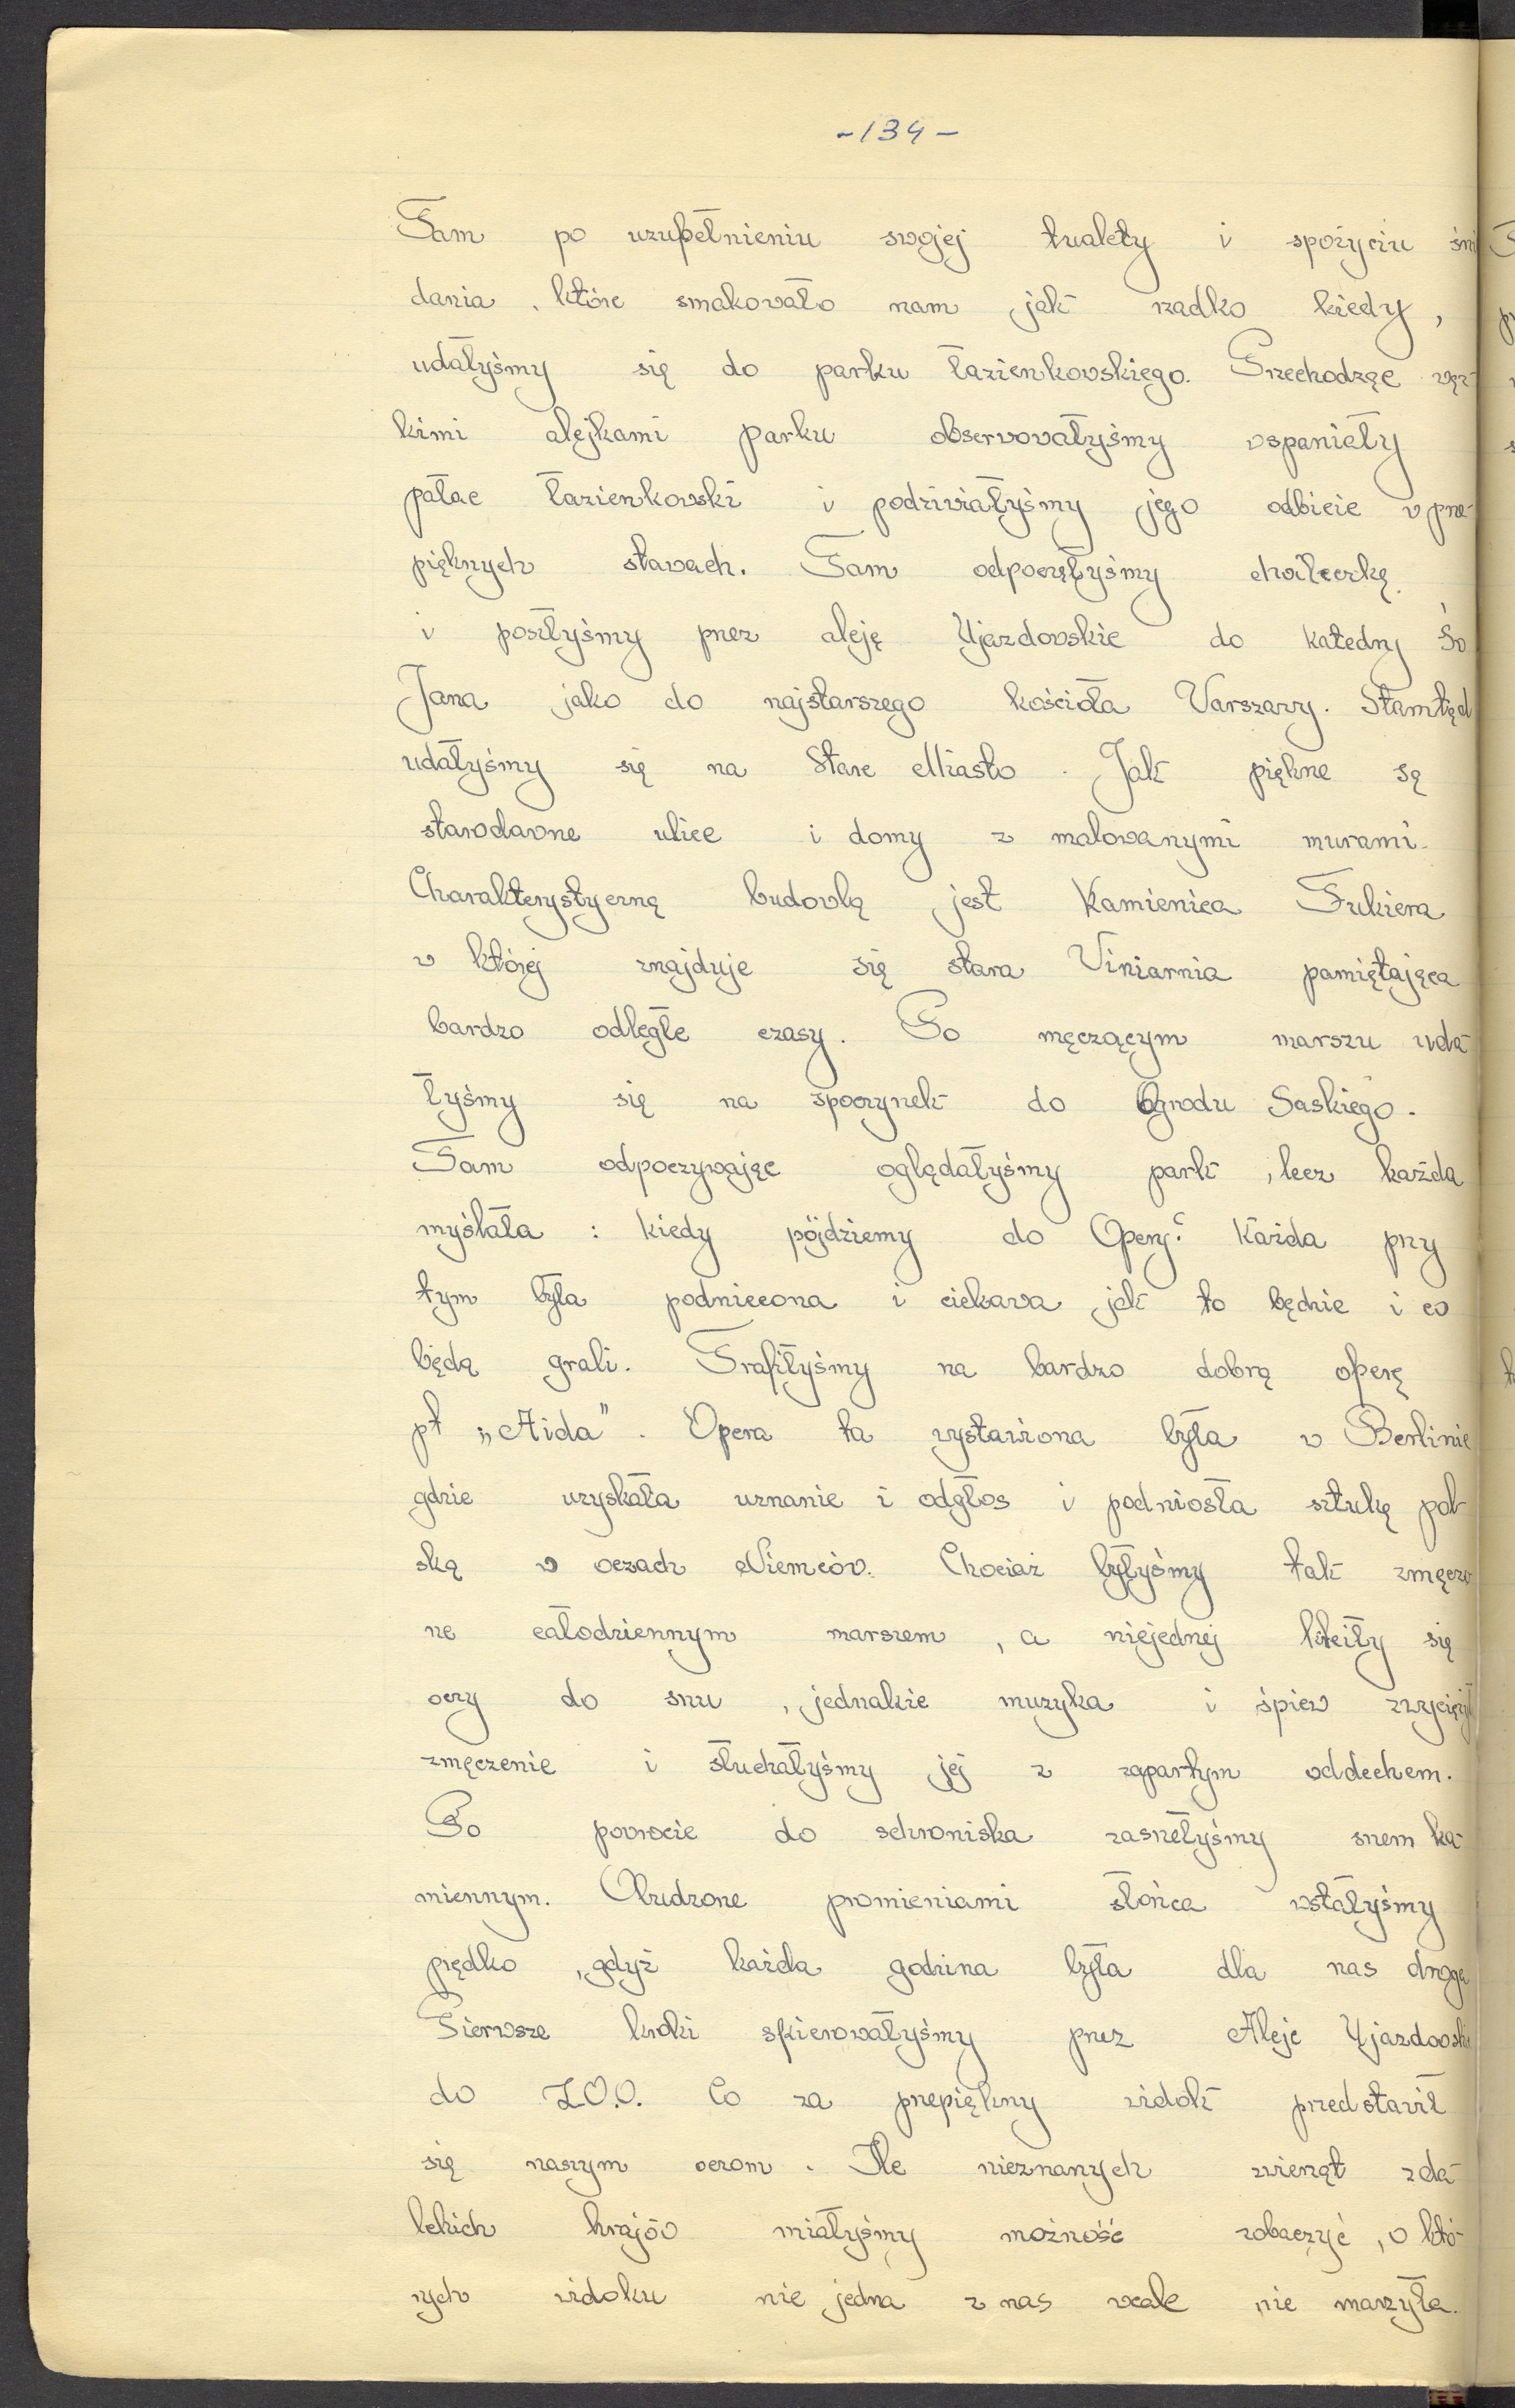 -134-
Tam po uzupełnieniu swojej tualety i spożyciu śni
dania, które smakowało nam jak rzadko kiedy,
udałyśmy się do parku łazienkowskiego. Przechodząc wąz-
kimi alejkami parku obserwowałyśmy wspaniały
pałac łazienkowski i podziwiałyśmy jego odbicie w prze-
pięknych stawach. Tam odpoczęłyśmy chwileczkę
i poszłyśmy przez aleję Ujazdowskie do katedry Św
Jana jako do najstarszego kościoła Warszawy. Stamtąd
udałyśmy się na Stare Miasto. Jak piękne są
starodawne ulice i domy z malowanymi murami.
Charakterystyczną budowlą jest Kamienica Fukiera
w której znajduje się stara Winiarnia pamiętająca
bardzo odległe czasy. Po męczącym marszu uda-
łyśmy się na spoczynek do Ogrodu Saskiego.
Tam odpoczywając oglądałyśmy park, lecz każda
myślała: kiedy pójdziemy do Opery? Każda przy
tym była podniecona i ciekawa jak to będzie i co
będą grali. Trafiłyśmy na bardzo dobrą operę
pt „Aida". Opera ta wystawiona była w Berlinie
gdzie uzyskała uznanie i odgłos i podniosła sztukę pol-
ską w oczach Niemców. Chociaż byłyśmy tak zmęczo
ne całodziennym marszem, a niejednej kleiły się
oczy do snu, jednakże muzyka i śpiew zwyciężył
zmęczenie i słuchałyśmy jej z zapartym oddechem.
Po powrocie do schroniska zasnęłyśmy snem ka-
miennym. Obudzone promieniami słońca wstałyśmy
prędko, gdyż każda godzina była dla nas drogą
Pierwsze kroki skierowałyśmy przez Aleje Ujazdowskie
do Z.O.O. Co za przepiękny widok przedstawił
się naszym oczom. Ile nieznanych zwierząt z da-
lekich krajów miałyśmy możność zobaczyć, o któ-
rych widoku nie jedna z nas wcale nie marzyła.